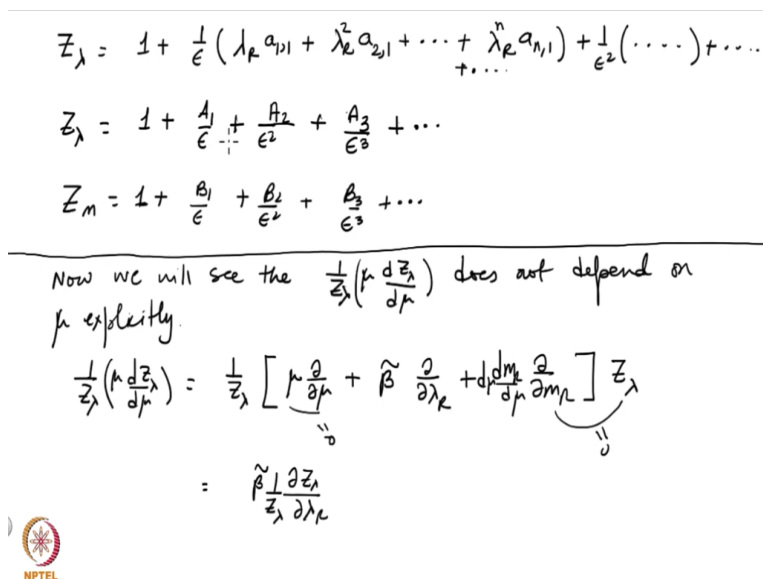 Z_λ = 1 + 1/ϵ (λ_R a_{1,1} + λ_R^2 a_{2,1} + ⋯ + λ_R^n a_{n,1}) + 1/ϵ^2 (⋯⋯) + ⋯
+ ⋯
Z_λ = 1 + A_1/ϵ + A_2/ϵ^2 + A_3/ϵ^3 + ⋯
Z_m = 1 + B_1/ϵ + B_2/ϵ^2 + B_3/ϵ^3 + ⋯
Now we will see the 1/Z_λ (μ dZ_λ/dμ) does not depend on
μ explicitly.
1/Z_λ (μ dZ_λ/dμ) = 1/Z_λ [ μ ∂/∂μ + β̃ ∂/∂λ_R + dμ dm_R/dμ ∂/∂m_R ] Z_λ
=0 =0
= β̃ 1/Z_λ ∂Z_λ/∂λ_R
NPTEL